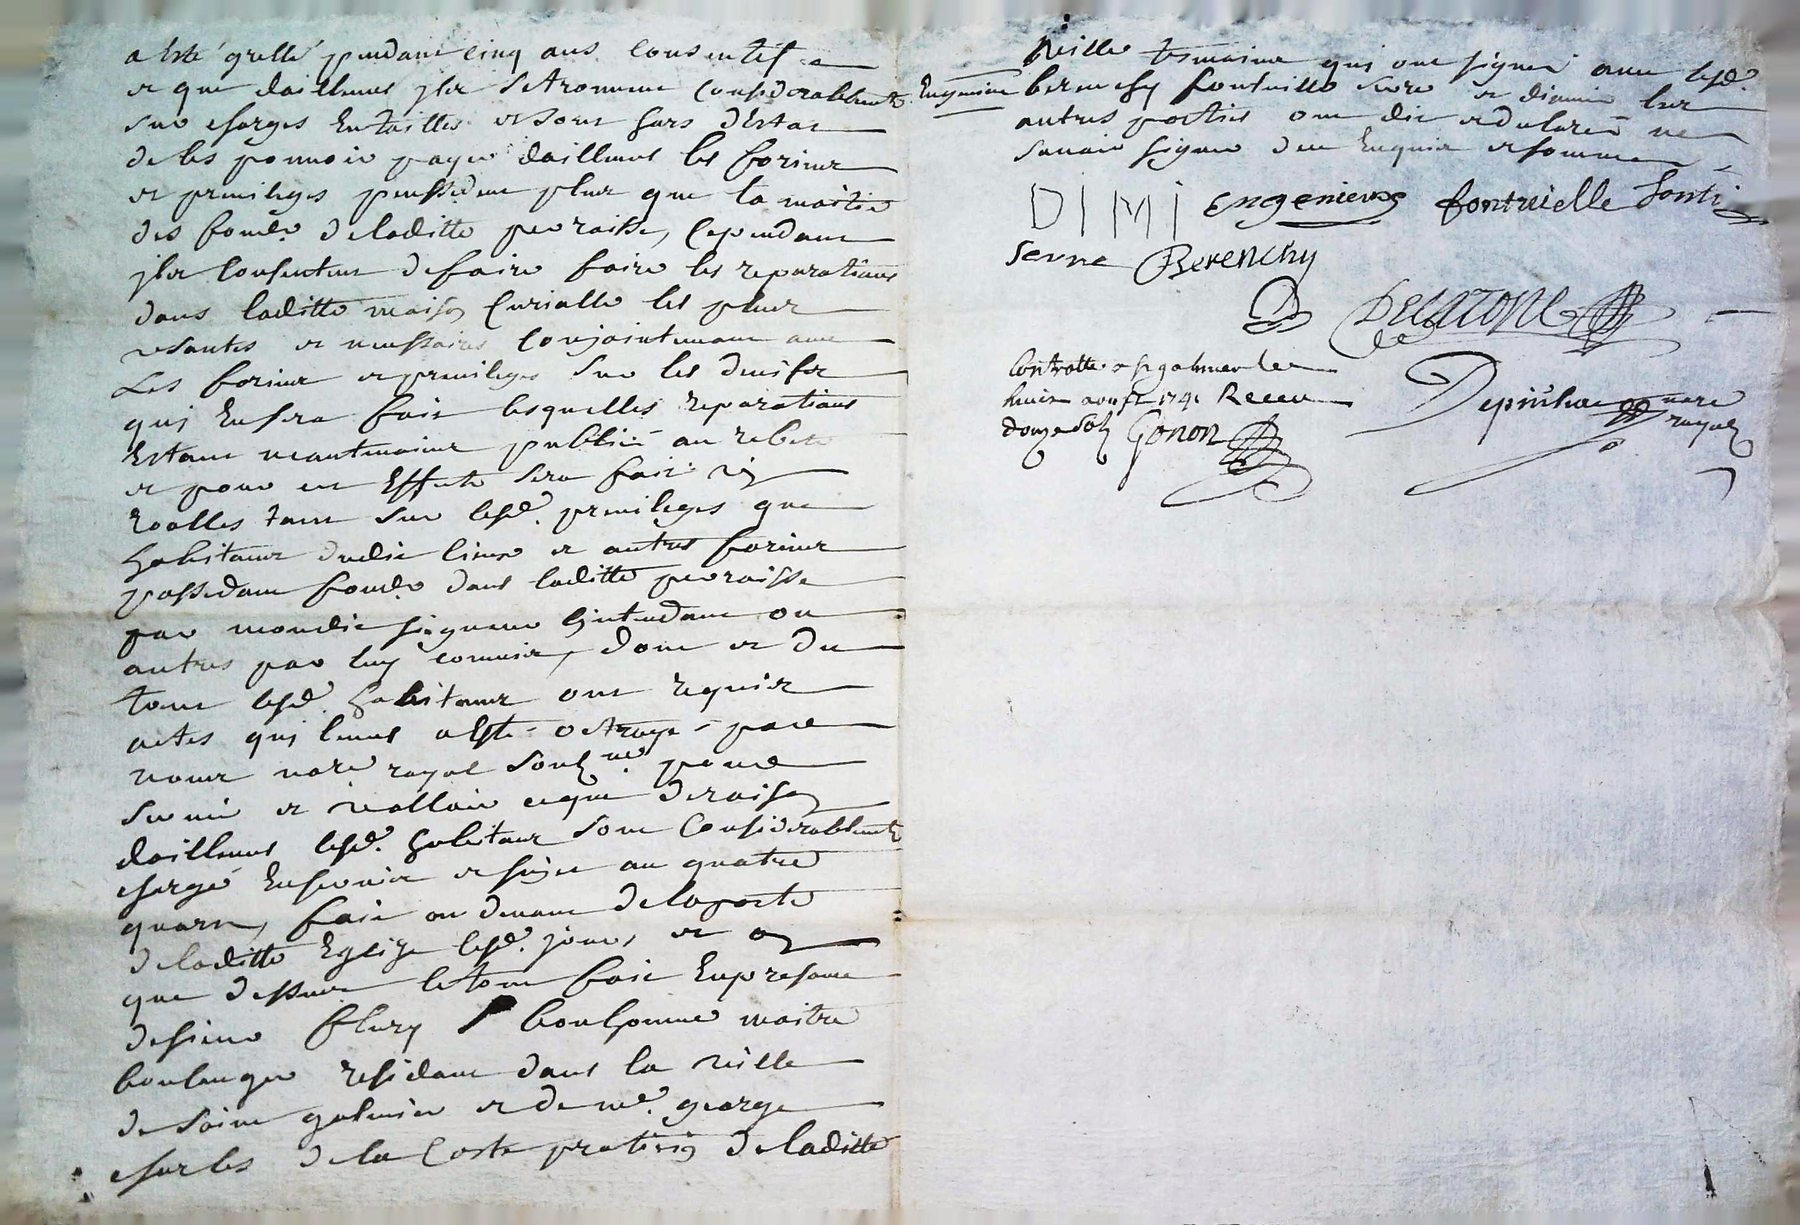 a esté grellé pendant cinq ans consentifs
et que dailleurs ils setrouvent considerablement
sur charges entailles et sont hors destat
de les pouvoir payer dailleurs les forins
et previleges poussedent plus que la moitié
des fonds de laditte perroisse, cependant
ils consentent de faire faire les reparations
dans laditte maison curialle les plus
usantes et necessaires conjointement avec
Les forins et previleges sur les devis
qui ensera fait lesquelles reparations
estant neantmoins publié au rebais
et pour cet effette sera fait un
roolles tant sur lesd. previleges que
habitants dudit lieux et autres forins
possedant fonds dans laditte perroisse
par mondit seigneur Lintendant ou
autres par luy commis, dont et du
tout lesd. habitants ont requis
actes qui leurs a esté octroyé par
nous nore royal soubzné pour
servir et valloir ceque deraison
dailleurs lesd. habitans sont considerablement
chargé enservis et sujet au quatre
quart, fait au devant de laporte
de laditte Eglize lesd. jours et an
que dessus letout fait enpresance
desieur fleury bonhomme maitre
boulanger residant dans la ville
de saint galmier et de me. george
charles de la Coste praticien de laditte
ville tesmoins qui ont signé avec lesd.
Engenieux berenchy fontvielle serre et dimier les
autres parties ont dit et declaré ne
savoir signer de ce enquis et sommés
DIMI engenieux fontvielle
serre Berenchy
Delacoste
Controllé a st galmier le
huit aoust 1741 Receu
douze solz Gonon
nore
royal